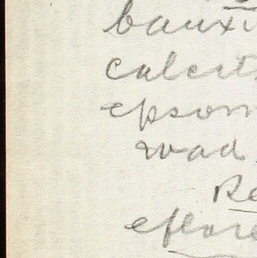 bauxi
calcit
epsom
wad
Re
eflore